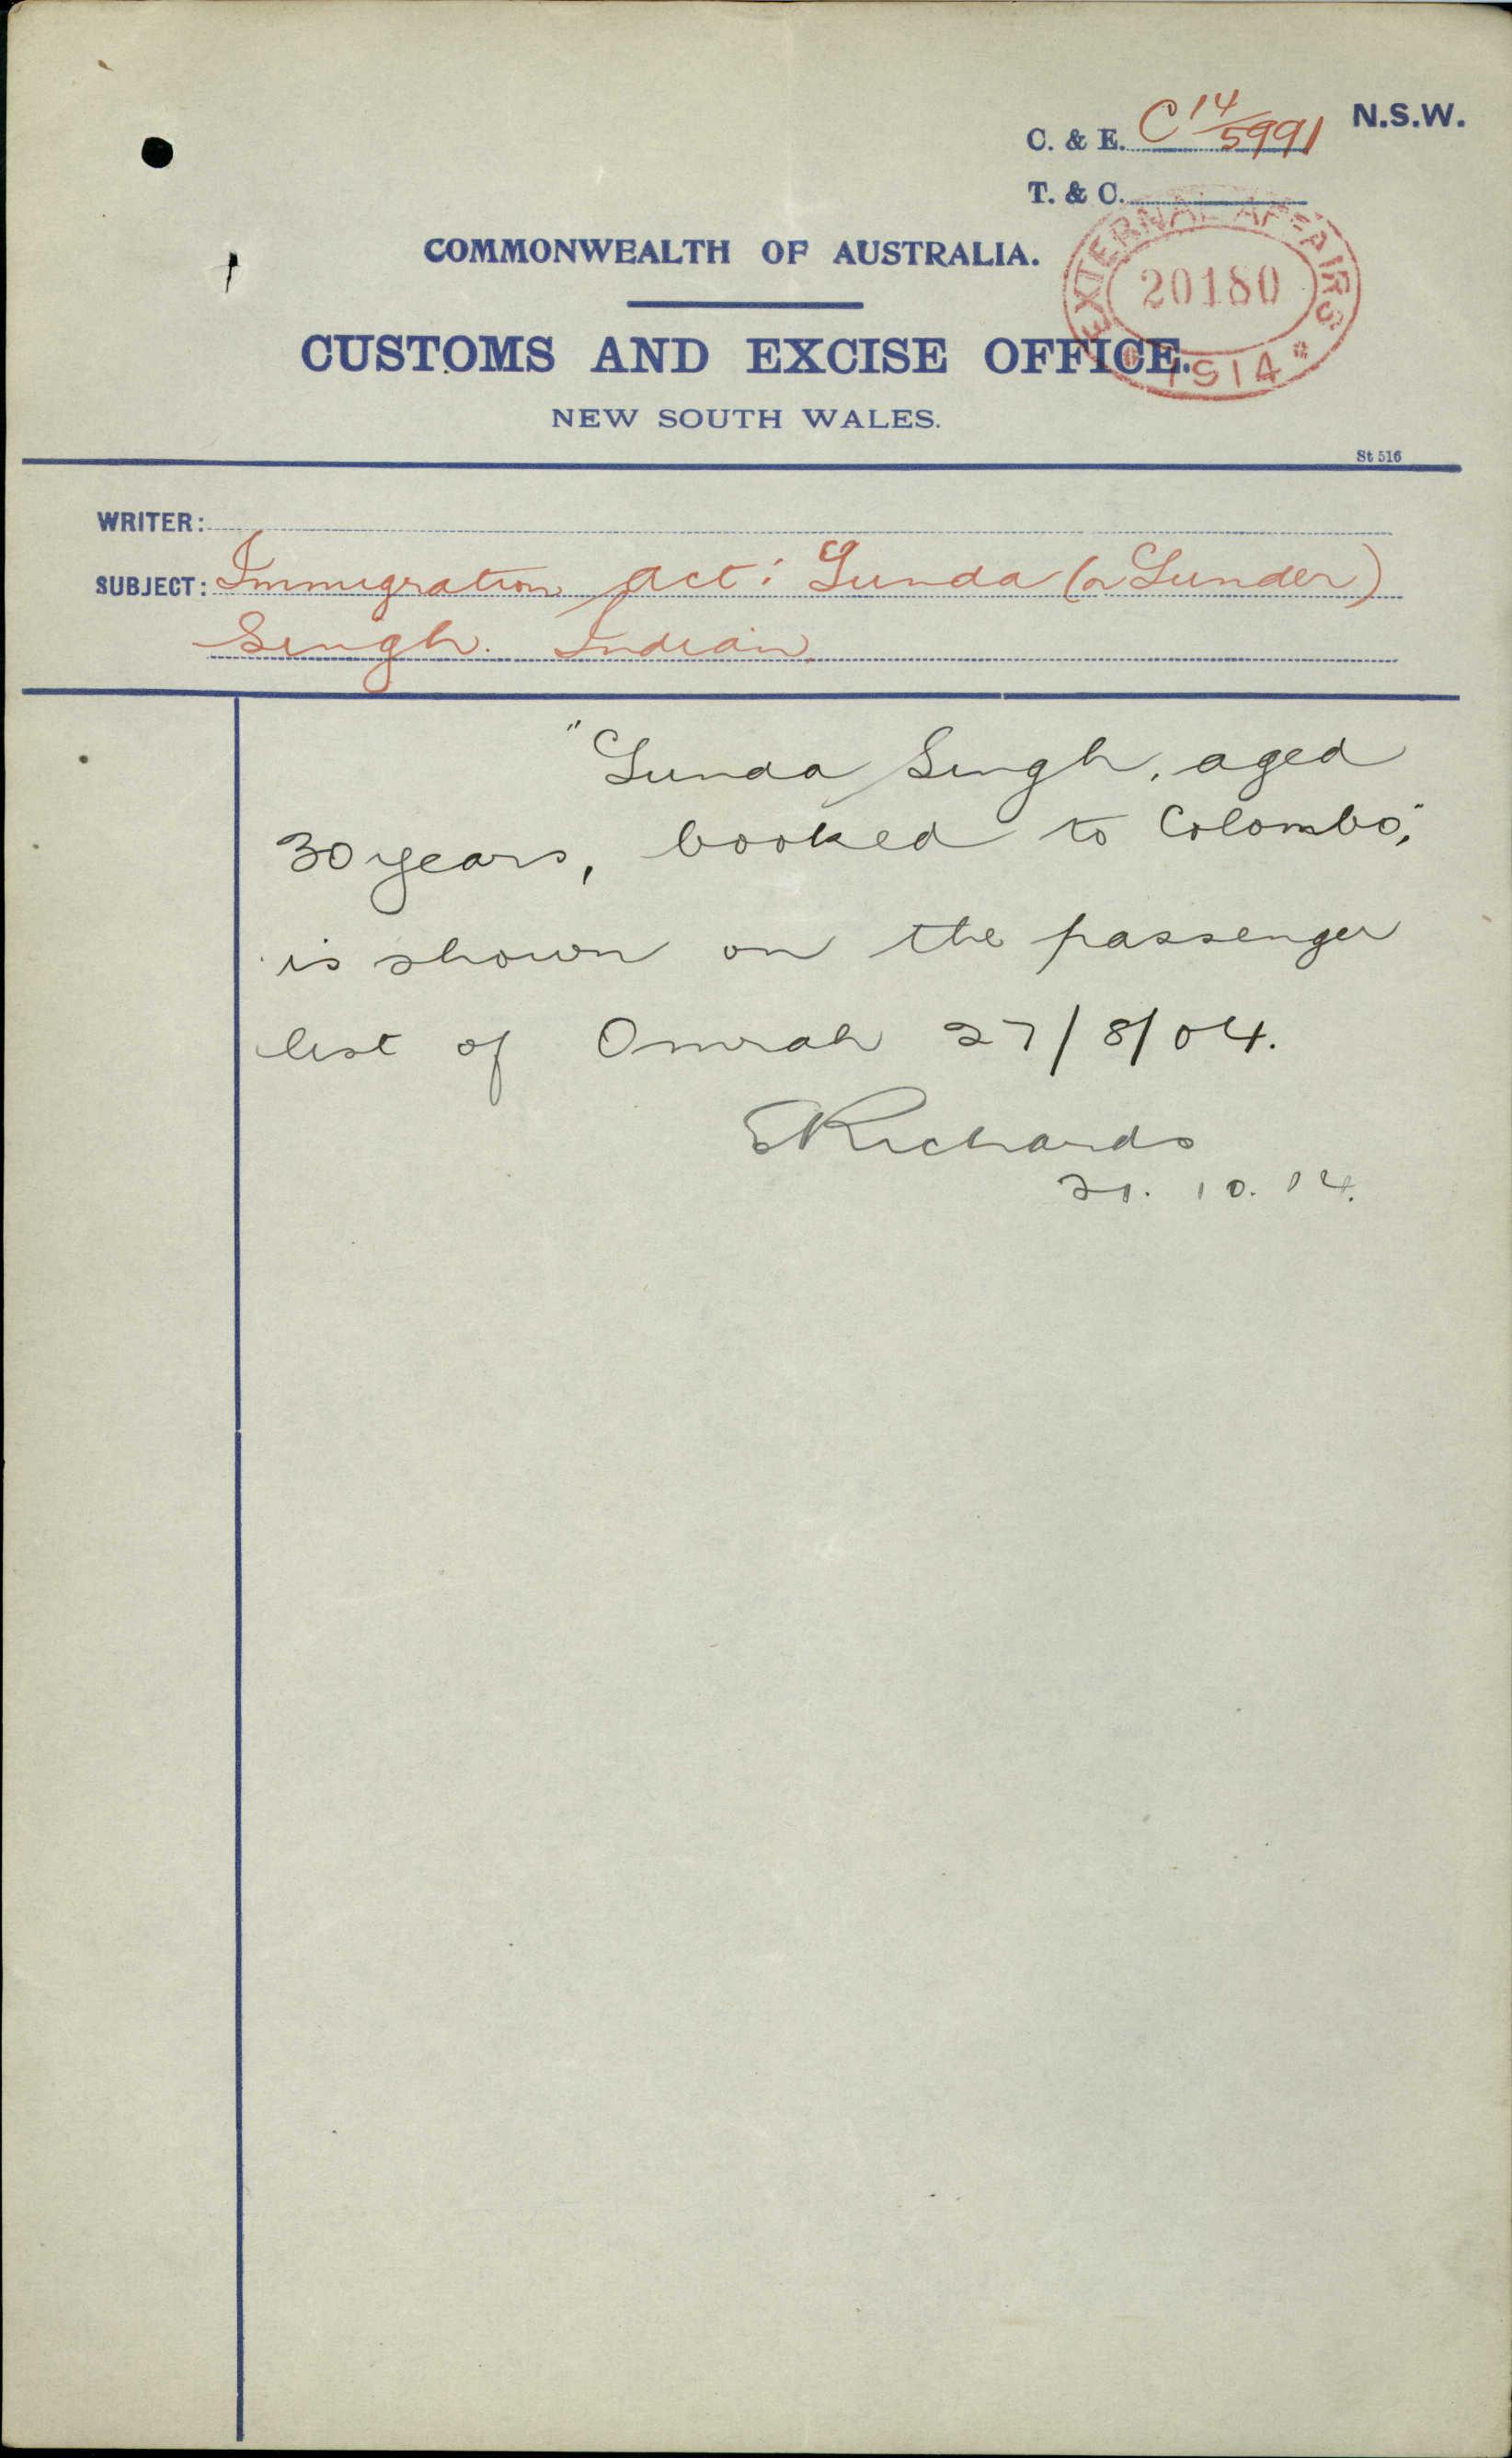 C. & E. C 14/5991 N.S.W.
T. & C.
COMMONWEALTH OF AUSTRALIA.
EXTERNAL AFFAIRS
20180
1914
CUSTOMS AND EXCISE OFFICE.
NEW SOUTH WALES.
St 516
WRITER:
SUBJECT: Immigration Act: Sunda (or Sunder)
Singh. Indian.
"Sunda Singh, aged
30 years, booked to Colombo,"
is shown on the passenger
list of Omrah 27/8/04.
E Richards
21.10.14.